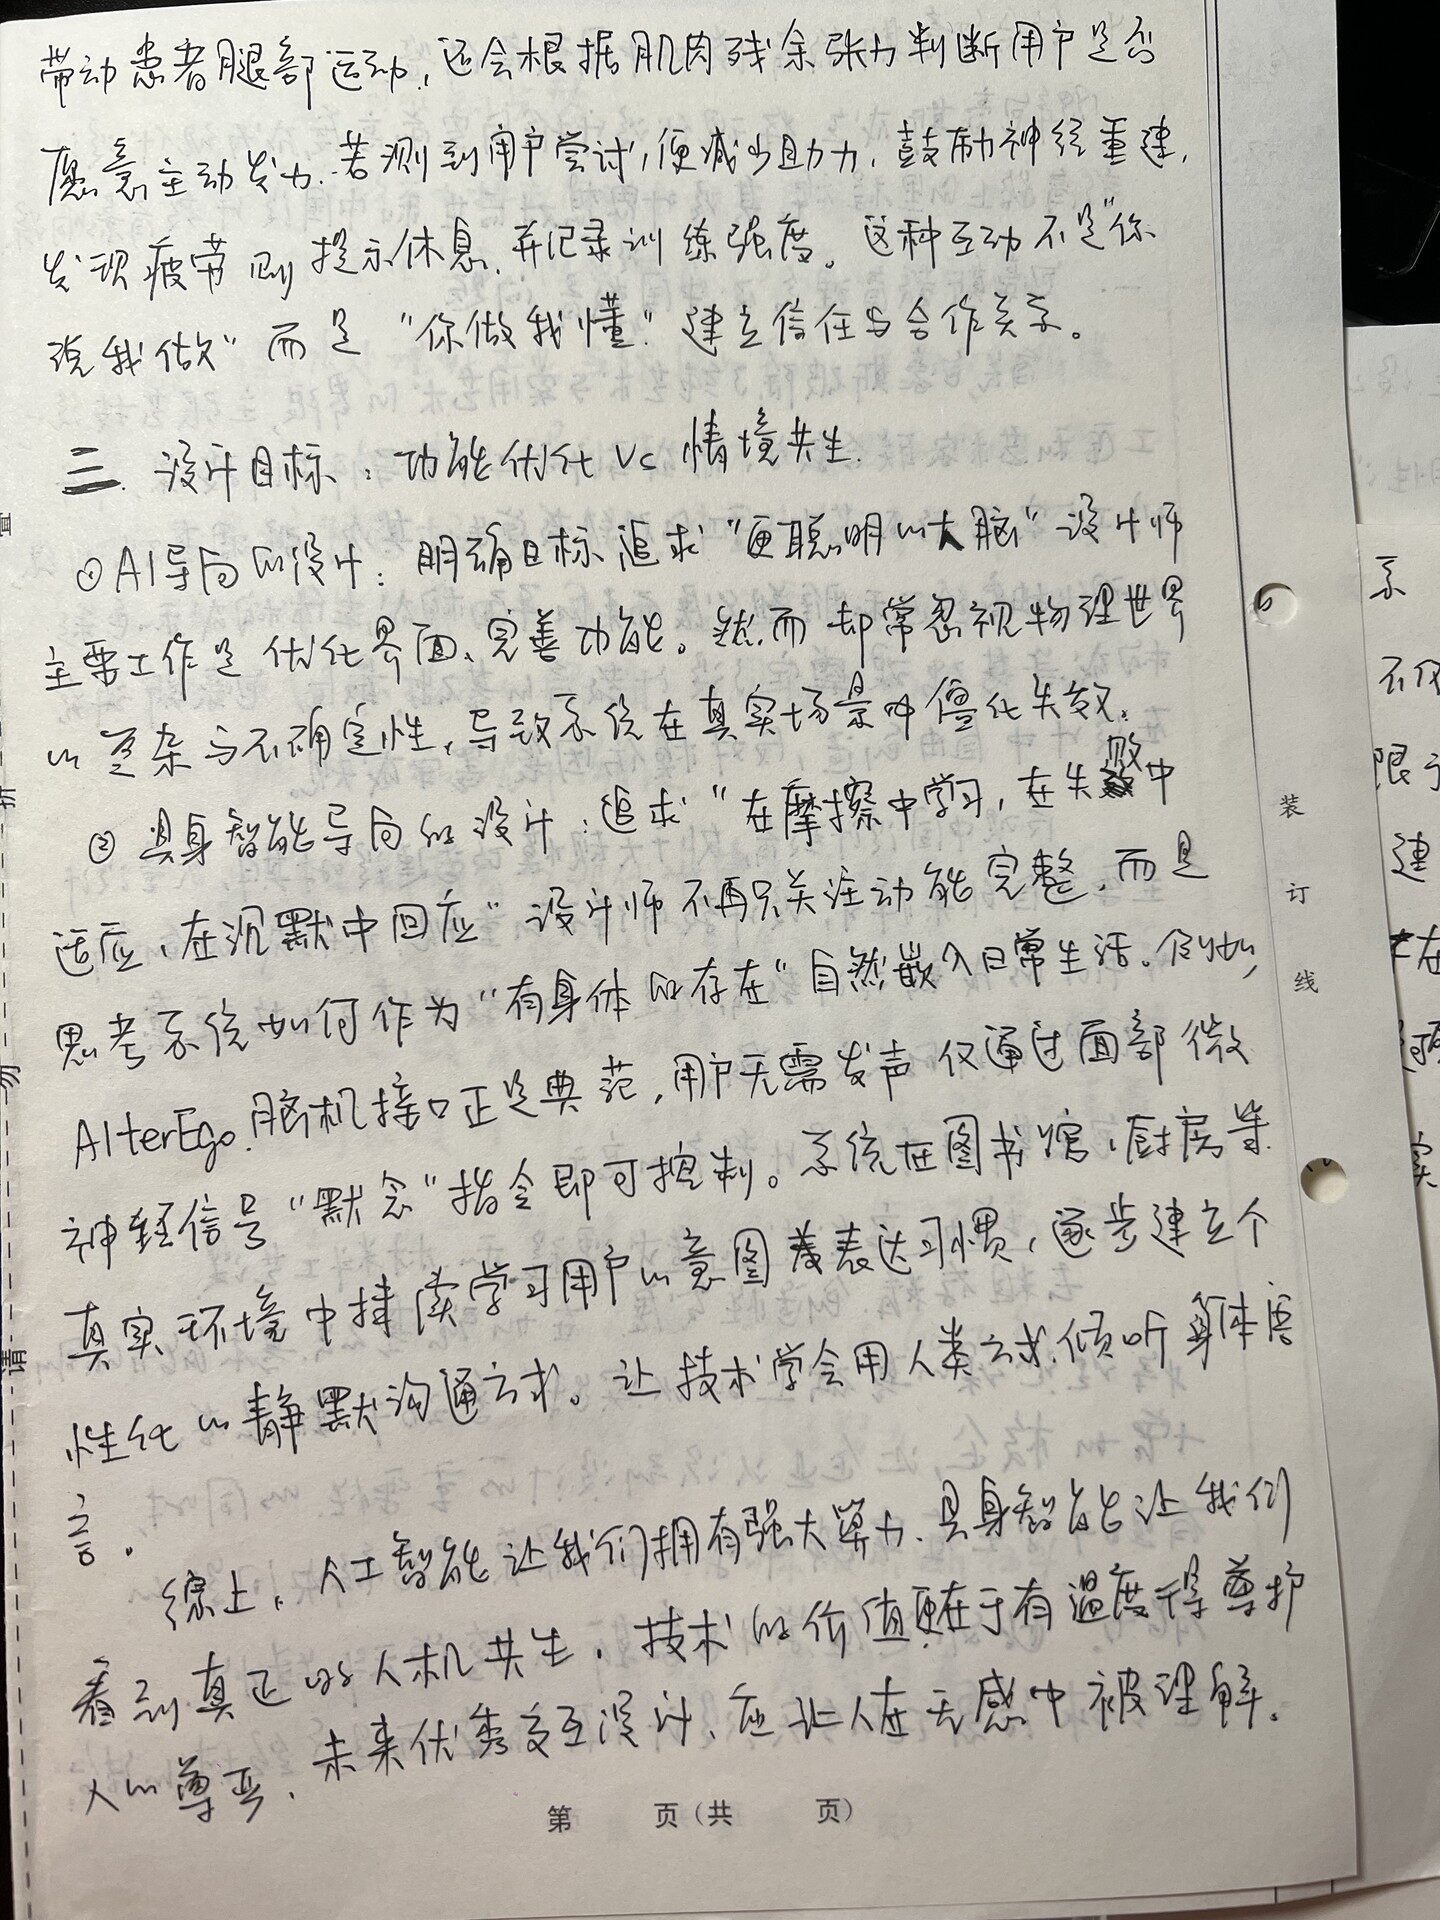 带动患者腿部运动，还会根据肌肉残余张力判断用户是否
愿意主动发力。若测到用户尝试，便减少助力，鼓励神经重建，
发现疲劳则提示休息，并记录训练强度。这种互动不是"你
说我做"而是"你做我懂"建立信任与合作关系。
三. 设计目标：功能优化 vs 情境共生.
①AI导向的设计：明确目标追求"更聪明的大脑"设计师
主要工作是优化界面、完善功能。然而却常忽视物理世界
的复杂与不确定性，导致系统在真实场景中僵化失效。
②具身智能导向的设计：追求"在摩擦中学习，在失败中
适应，在沉默中回应"设计师不再只关注功能完整，而是
思考系统如何作为"有身体的存在"自然嵌入日常生活。例如，
AlterEgo.脑机接口正是典范，用户无需发声仅通过面部微
神经信号"默念"指令即可控制。系统在图书馆，厨房等
真实环境中持续学习用户的意图表达习惯，逐步建立个
性化的静默沟通方式。让技术学会用人类方式，倾听身体语
言。
综上，人工智能让我们拥有强大算力，具身智能让我们
看到真正的人机共生，技术的价值更在于有温度得尊护
人的尊严，未来优秀交互设计，应让人在无感中被理解。
第 页（共 页）
装
订
线
系
限于
建
在
请
勿